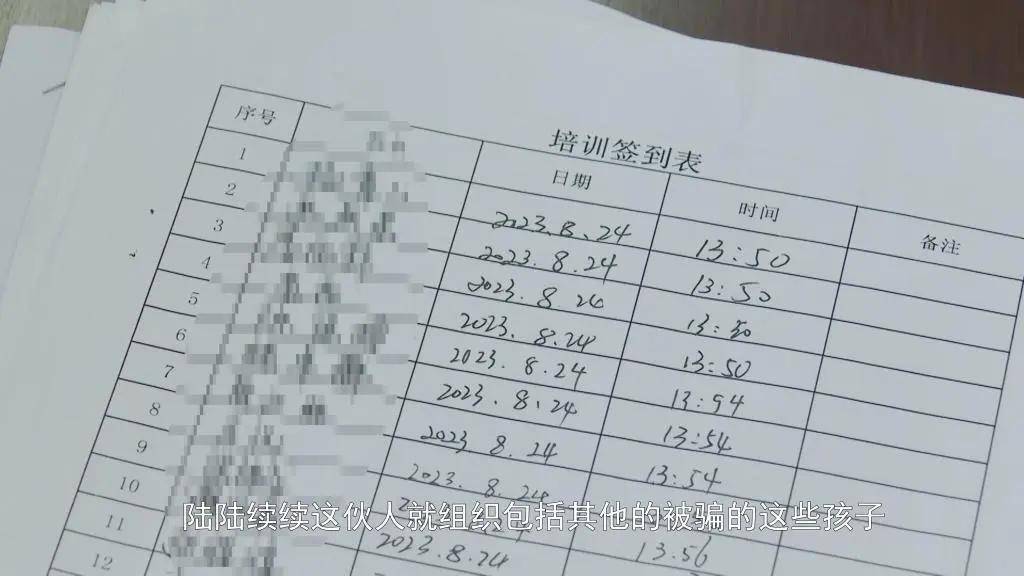 培训签到表
序号 日期 时间 备注
1 2023.8.24 13:50
2 2023.8.24 13:50
3 2023.8.24 13:50
4 2023.8.24 13:50
5 2023.8.24 13:54
6 2023.8.24 13:54
7 2023.8.24 13:54
8 2023.8.24
9 13:56
10 2023.8.24
11
12
陆陆续续这伙人就组织包括其他的被骗的这些孩子